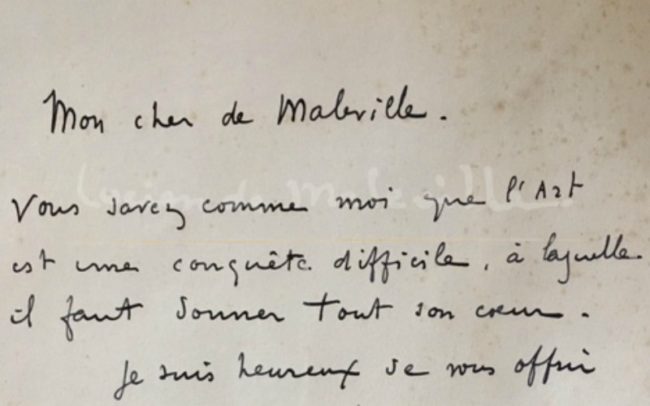 Mon cher de Maleville.
Vous savez comme moi que l'Art
est une conquête difficile, à laquelle
il faut donner tout son cœur.
Je suis heureux de vous offrir